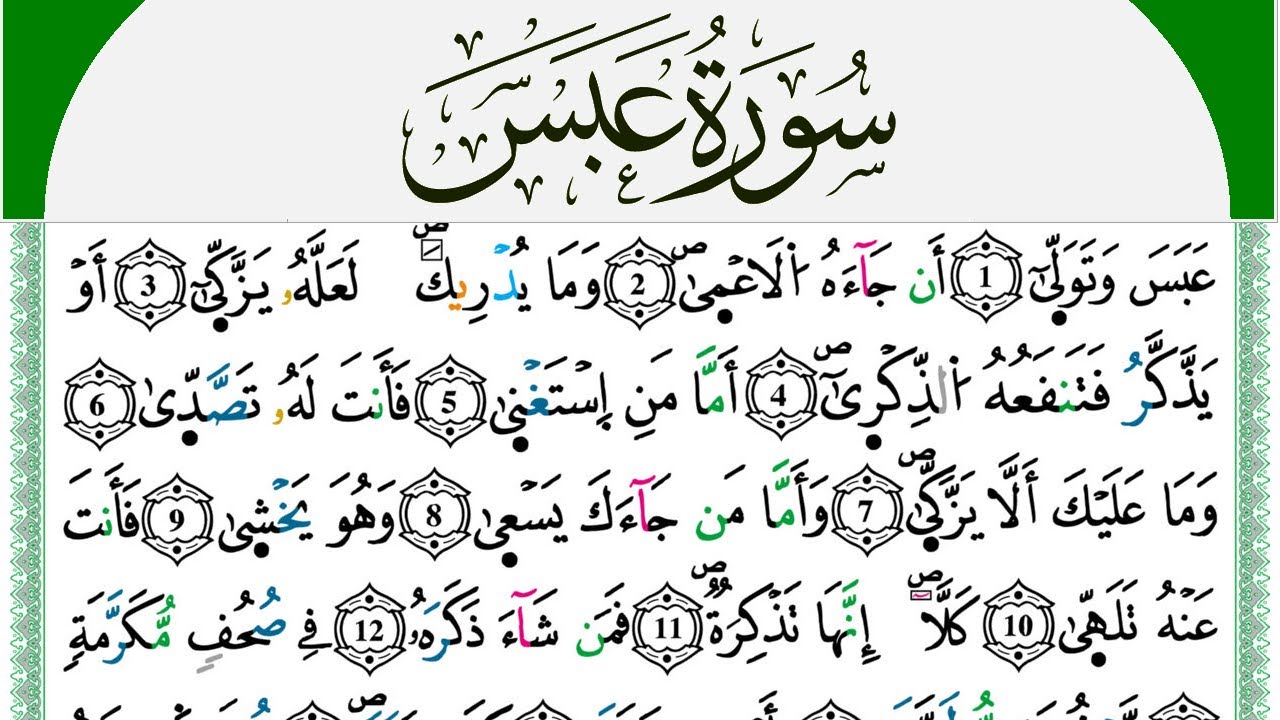 سُورَةُ عَبَسَ
عَبَسَ وَتَوَلَّىٰٓ 1 أَن جَآءَهُ اُ۬لَاعْمىٰ 2 وَمَا يُدْرِيكَ لَعَلَّهُۥ يَزَّكّىٰٓ 3 أَوْ
يَذَّكَّرُ فَتَنفَعُهُ اُ۬لذِّكْرىٰٓ 4 أَمَّا مَنِ اِسْتَغْنىٰ 5 فَأَنتَ لَهُۥ تَصَّدّىٰ 6
وَمَا عَلَيْكَ أَلَّا يَزَّكّىٰ 7 وَأَمَّا مَن جَآءَكَ يَسْعىٰ 8 وَهُوَ يَخْشىٰ 9 فَأَنتَ
عَنْهُ تَلَهّىٰ 10 كَلَّا إِنَّهَا تَذْكِرَةٌ 11 فَمَن شَآءَ ذَكَرَهُۥ 12 فِے صُحُفٍ مُّكَرَّمَةٍ